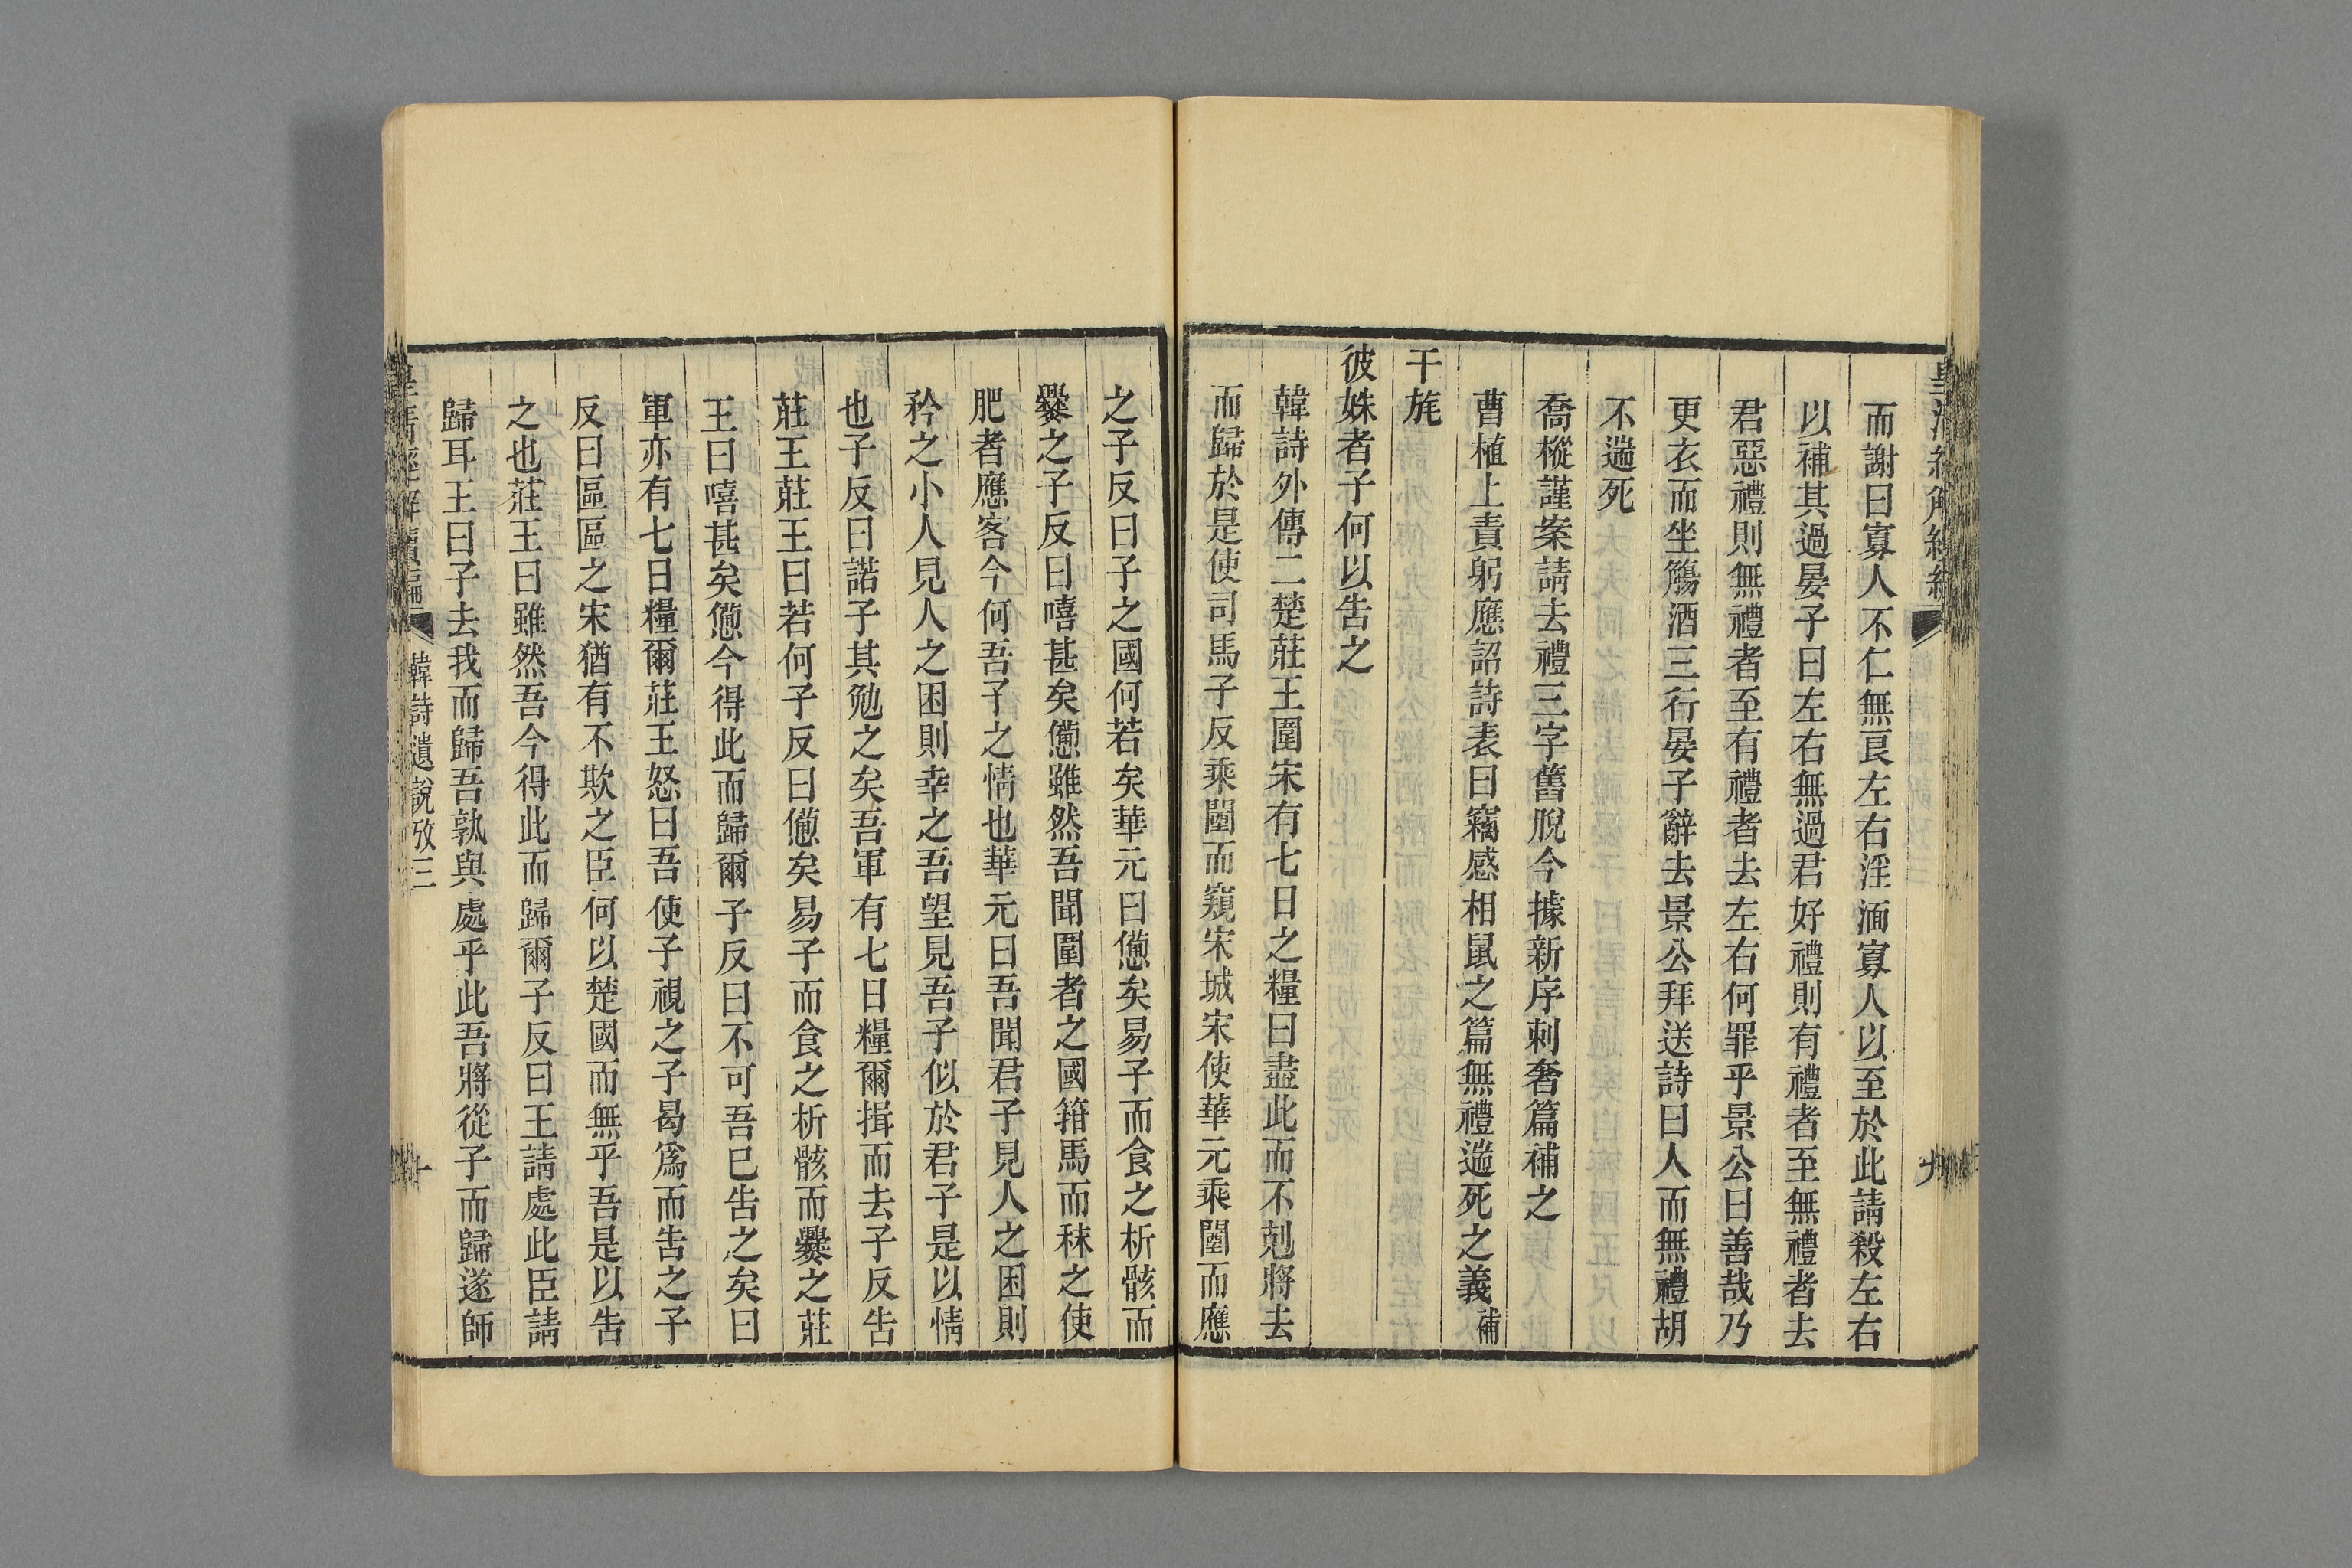 而謝曰寡人不仁無良左右淫湎寡人以至於此請殺左右
以補其過晏子曰左右無過君好禮則有禮者至無禮者去
君惡禮則無禮者至有禮者去左右何罪乎景公曰善哉乃
更衣而坐觴酒三行晏子辭去景公拜送詩曰人而無禮胡
不遄死
喬樅謹案請去禮三字舊脫今據新序刺奢篇補之
曹植上責躬應詔詩表曰竊感相鼠之篇無禮遄死之義補
干旄
彼姝者子何以告之
韓詩外傳二楚莊王圍宋有七日之糧曰盡此而不剋將去
而歸於是使司馬子反乘闉而窺宋城宋使華元乘闉而應
之子反曰子之國何若矣華元曰憊矣易子而食之析骸而
爨之子反曰嘻甚矣憊雖然吾聞圍者之國箝馬而秣之使
肥者應客今何吾子之情也華元曰吾聞君子見人之困則
矜之小人見人之困則幸之吾望見吾子似於君子是以情
也子反曰諾子其勉之矣吾軍有七日糧爾揖而去子反告
莊王莊王曰若何子反曰憊矣易子而食之析骸而爨之莊
王曰嘻甚矣憊今得此而歸爾子反曰不可吾已告之矣曰
軍亦有七日糧爾莊王怒曰吾使子視之子曷爲而告之子
反曰區區之宋猶有不欺之臣何以楚國而無乎吾是以告
之也莊王曰雖然吾今得此而歸爾子反曰王請處此臣請
歸耳王曰子去我而歸吾孰與處乎此吾將從子而歸遂師
韓詩遺說攷三
十